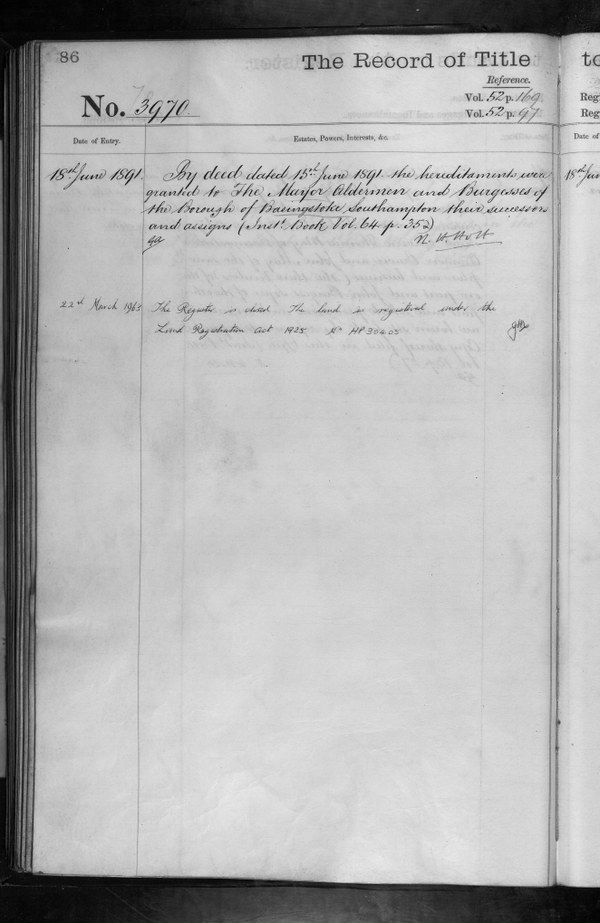 86
The Record of Title
Reference.
Vol. 52 p. 169
Vol. 52 p. 97
No. 3970.
Date of Entry.
Estates, Powers, Interests, &c.
18th June 1891. By deed dated 15th June 1891 the hereditaments were
granted to The Mayor Aldermen and Burgesses of
the Borough of Basingstoke, Southampton their successors
and assigns (Inst. Book Vol. 64 p. 352)
22nd March 1965 The Register is closed The land is registered under the
Land Registration Act 1925
to
Reg
Reg
Date of
18th Jun